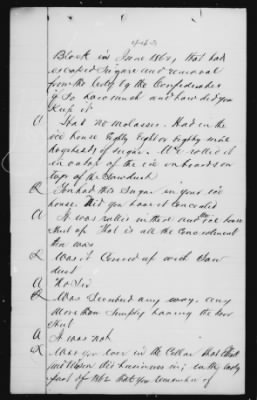 Block in June 1862, that had
escaped seizure and removal
from the City by the Confederates
& so how much and how did you
keep it
A I had no molasses. Had in the
ice house Eighty Eight or Eighty nine
hogsheads of sugar. We rolled it
in on top of the ice on boards on
top of the Sawdust
Q You had this Sugar in your ice
house. Did you have it concealed
A It was rolled in there and the ice house
shut up that is all the concealment
there was
Q Was it Covered up with Saw
dust
A No Sir
Q Was Secured any way any
more than simply having the door
shut
A It was not
Q Were you ever in the Cellar that
did business in, in the early
part of 1862 that you remember of